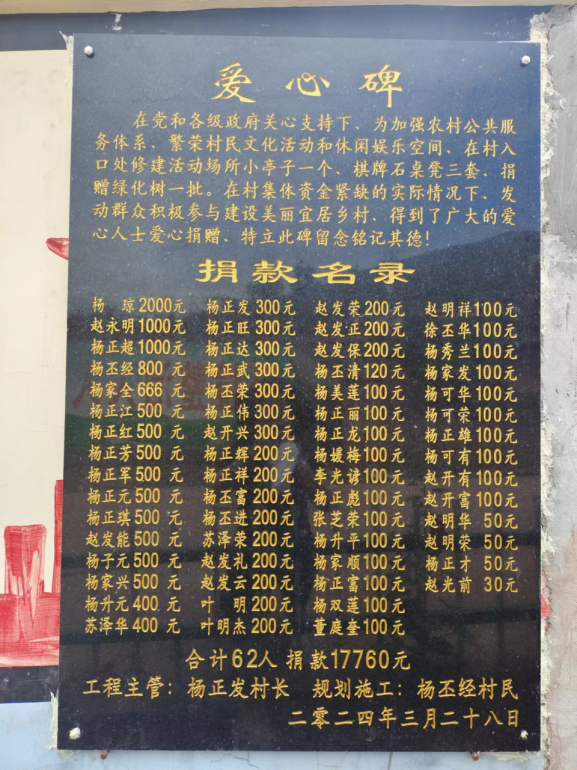 爱心碑
在党和各级政府关心支持下，为加强农村公共服
务体系，繁荣村民文化活动和休闲娱乐空间，在村入
口处修建活动场所小亭子一个，棋牌石桌凳三套，捐
赠绿化树一批。在村集体资金紧缺的实际情况下，发
动群众积极参与建设美丽宜居乡村，得到了广大的爱
心人士爱心捐赠、特立此碑留念铭记其德！
捐款名录
杨 琼2000元 杨正发300元 赵发荣200元 赵明祥100元
赵永明1000元 杨正旺300元 赵发正200元 徐丕华100元
杨正超1000元 杨正达300元 赵发保200元 杨秀兰100元
杨丕经800 元 杨正武300元 杨丕清120元 杨家发100元
杨家全666 元 杨丕荣300元 杨美莲100元 杨可华100元
杨正江500 元 杨正伟300元 杨正丽100元 杨可荣100元
杨正红500 元 赵开兴300元 杨正龙100元 杨正雄100元
杨正芳500 元 杨正辉200元 杨媛梅100元 杨可有100元
杨正军500 元 杨正祥200元 李光谚100元 赵开有100元
杨正元500 元 杨丕富200元 杨正彪100元 赵开富100元
杨正琪500 元 杨丕进200元 张芝荣100元 赵明华 50元
赵发能500 元 苏泽荣200元 杨升平100元 赵明荣 50元
杨子元500 元 赵发礼200元 杨家顺100元 杨正才 50元
杨家兴500 元 赵发云200元 杨正富100元 赵光前 30元
杨升元400 元 叶 明200元 杨双莲100元
苏泽华400 元 叶明杰200元 董庭奎100元
合计62人 捐款17760元
工程主管：杨正发村长 规划施工：杨丕经村民
二零二四年三月二十八日